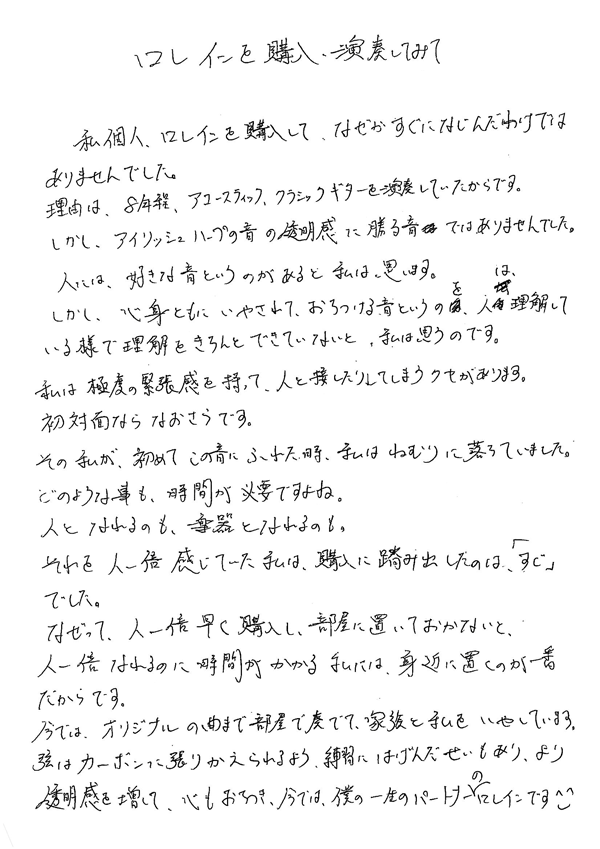 ロレインを購入、演奏してみて
私個人、ロレインを購入して、なぜかすぐになじんだわけでは
ありませんでした。
理由は、8年程、アコースティック、クラシックギターを演奏していたからです。
しかし、アイリッシュハープの音の透明感に勝る音ではありませんでした。
人には、好きな音というのがあると私は思います。
しかし、心身ともにいやされて、おちつける音というのを、人は、理解して
いる様で理解をきちんとできていないと、私は思うのです。
私は極度の緊張感を持って、人と接したりしてしまうクセがあります。
初対面ならなおさらです。
その私が、初めてこの音にふれた時、私はねむりに落ちていました。
どのような事も、時間が必要ですよね。
人となれるのも、楽器となれるのも。
それを人一倍感じていた私は、購入に踏み出したのは、「すぐ」
でした。
なぜって、人一倍早く購入し、部屋に置いておかないと、
人一倍なれるのに時間がかかる私には、身近に置くのが一番
だからです。
今では、オリジナルの曲まで部屋で奏でて、家族と私をいやしています。
弦はカーボンに張りかえられるよう、練習にはげんだせいもあり、より
透明感を増して、心もおちつき、今では、僕の一生のパートナーのロレインです^^